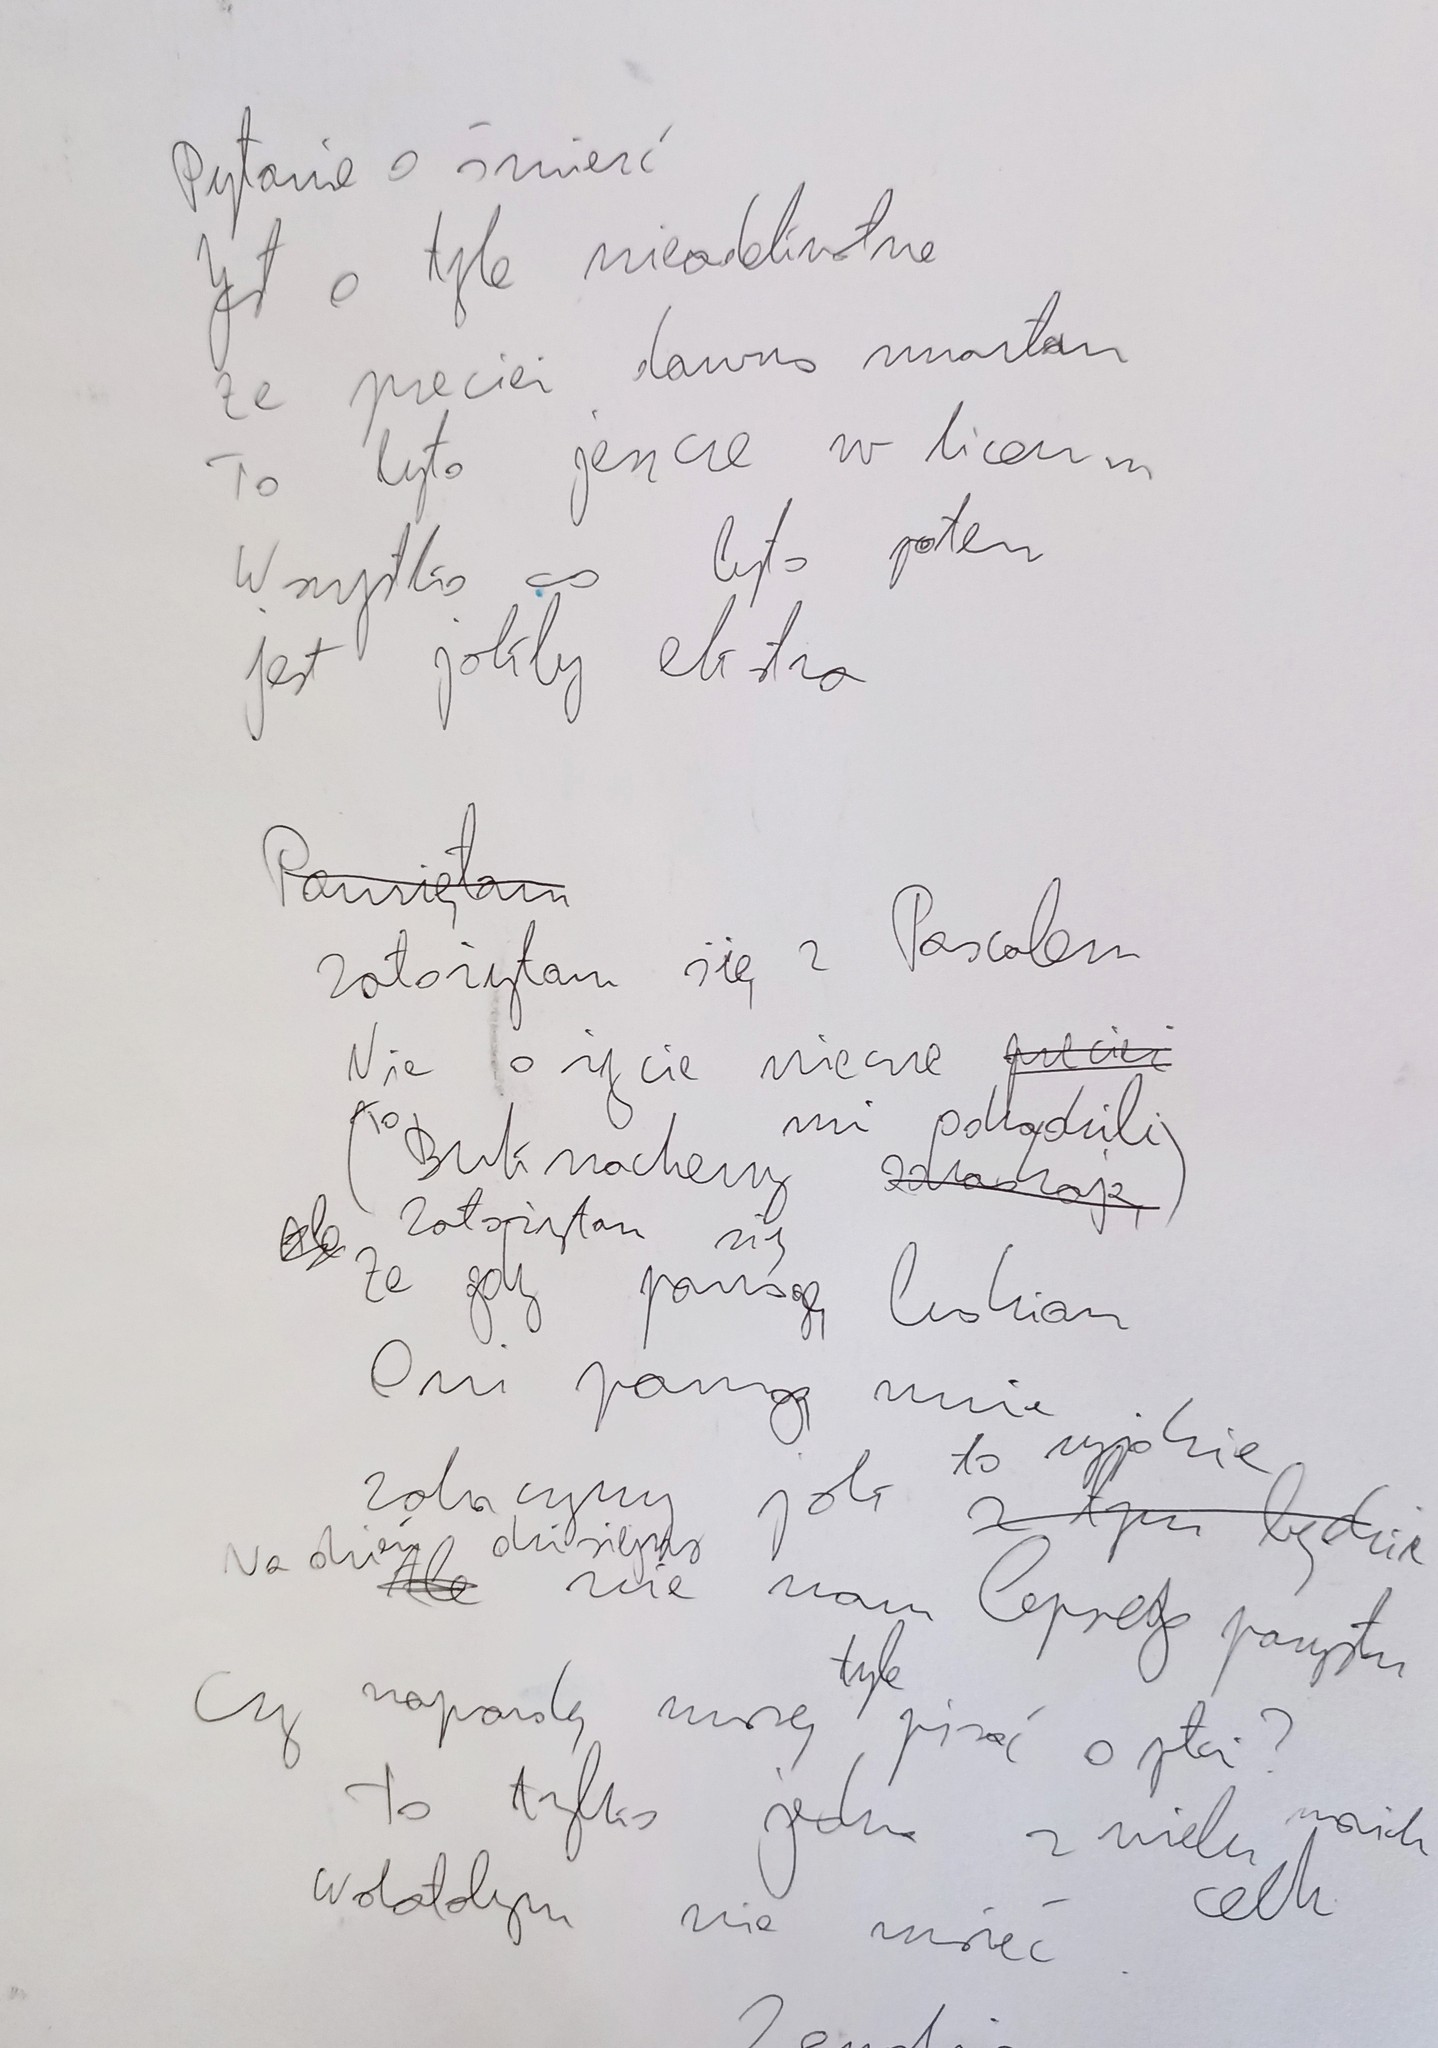 Pytanie o śmierć
Jest o tyle nieadekwatne
że przecież dawno umarłam
To było jeszcze w liceum
Wszystko co było potem
jest jakby ekstra
Pamiętam
założyłam się z Pascalem
Nie o życie wieczne przecież
(To Bukmacherzy mi podradzili zdradzają)
Ale założyłam się
że gdy pomogę ludziom
Oni pomogą mnie
zobaczymy jak to wyjdzie z tym będzie
Na dzień dzisiejszy Ale nie mam lepszego pomysłu
Czy naprawdę muszę tyle pisać o płci?
To tylko jedna z wielu moich cech
Wolałabym nie mieć